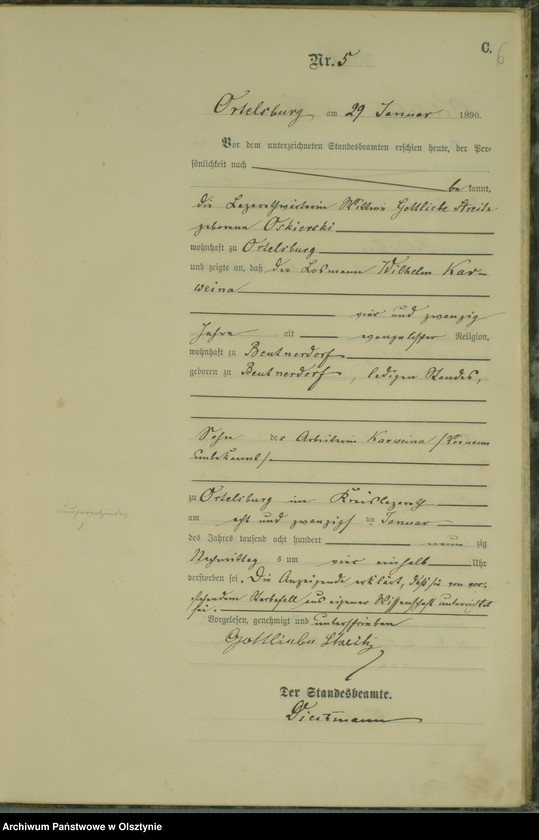 C.
6
Nr. 5
Ortelsburg am 29 Januar 1890.
Vor dem unterzeichneten Standesbeamten erschien heute, der Per-
sönlichkeit nach
be kannt,
die Lazarethwärterin Wittwe Gottliebe
geborene Oskierski
wohnhaft zu Ortelsburg
und zeigte an, daß der Losmann Wilhelm Kar-
weina
vier und zwanzig
Jahre alt evangelischer Religion,
wohnhaft zu Beutnerdorf
geboren zu Beutnerdorf, ledigen Standes,
Sohn der Arbeiterin Karweina /Vorname
unbekannt/.
zu Ortelsburg im Kreislazareth
am acht und zwanzigsten Januar
des Jahres tausend acht hundert neun zig
Nachmittags um vier einhalb Uhr
verstorben sei. Die Anzeigende erklärt, daß sie von vor-
stehendem Sterbefall aus eigener Wissenschaft unterrichtet
sei.
Vorgelesen, genehmigt und unterschrieben
Gottliebe
Der Standesbeamte.
Archiwum Państwowe w Olsztynie